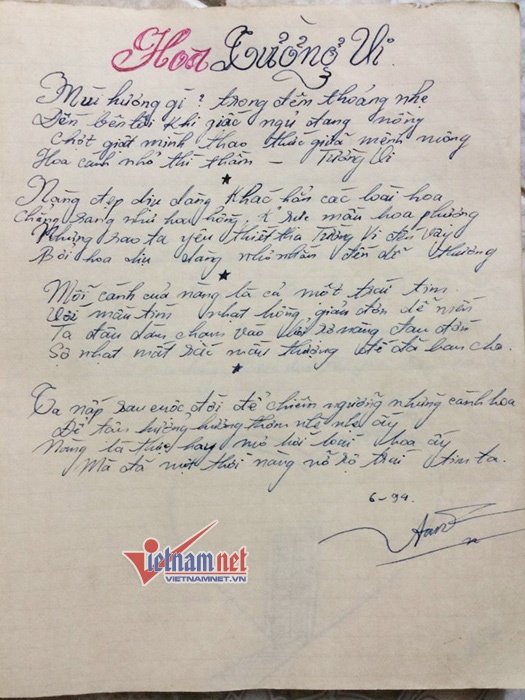 Hoa Tưởng Vi
Mùi hương gì? trong đêm thoáng nhẹ
Đến bên tôi khi giấc ngủ đang nồng
Chợt giật mình thao thức giữa mênh mông
Hoa cánh nhỏ thì thầm – Tường Vi
Nàng đẹp dịu dàng khác hẳn các loài hoa
Chẳng sang như hoa hồng, K rực màu hoa phượng
Nhưng sao ta yêu thiết tha Tường Vi đến vậy
Bởi hoa dịu dàng nhú nhấn đến dễ thương
Mỗi cánh của nàng là cả một trái tim
Với màu tím nhạt hồng, giản đơn dễ mến
Ta đâu dám chạm vào vì sợ nàng đau đớn
Sợ nhạt mất sắc màu thượng đế đã ban cho
Ta nấp sau cuộc đời để chiêm ngưỡng những cánh hoa
Để tận hưởng hương thơm nhè nhẹ ấy
Nàng là thực hay mơ hỡi loài hoa ấy
Mà đã một thời nàng nở rộ trái tim ta.
6-99
Vietnamnet
VIETNAMNET.VN